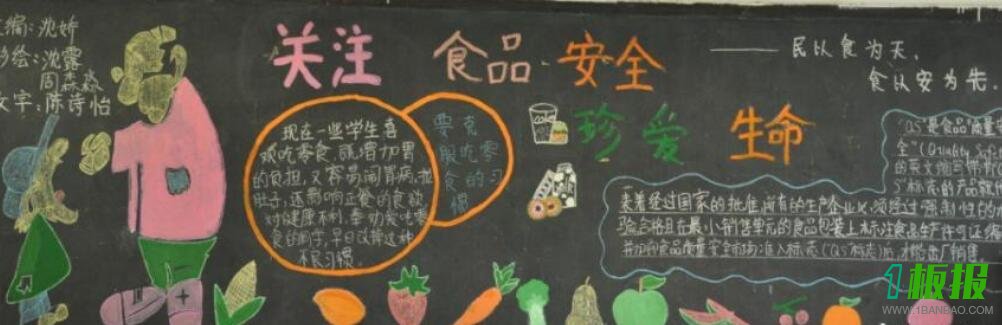 主编:沈娇
彩绘:沈露
周淼淼
文字:陈诗怡
关注 食品安全
——民以食为天,
食以安为先.
珍爱 生命
要克
服吃零
食的习
惯
现在一些学生喜
欢吃零食,既增加胃
的负担,又容易闹胃病,拉
肚子,还影响正餐的食欲
对健康不利,奉劝爱吃零
食的同学,早日改掉这种
不良习惯.
"QS"是食品质量
全"(Quality Safe
的英文缩写带有
S"标志的产品就
着经过国家的批准,所有的生产企业必须经过强制性的
验合格且在最小销售单元的食品包装上标注食品生产许可证编
并加印食品质量安全市场准入标志("QS"标志)后,才能出厂销售.
1板报
WWW.1BANBAO.COM